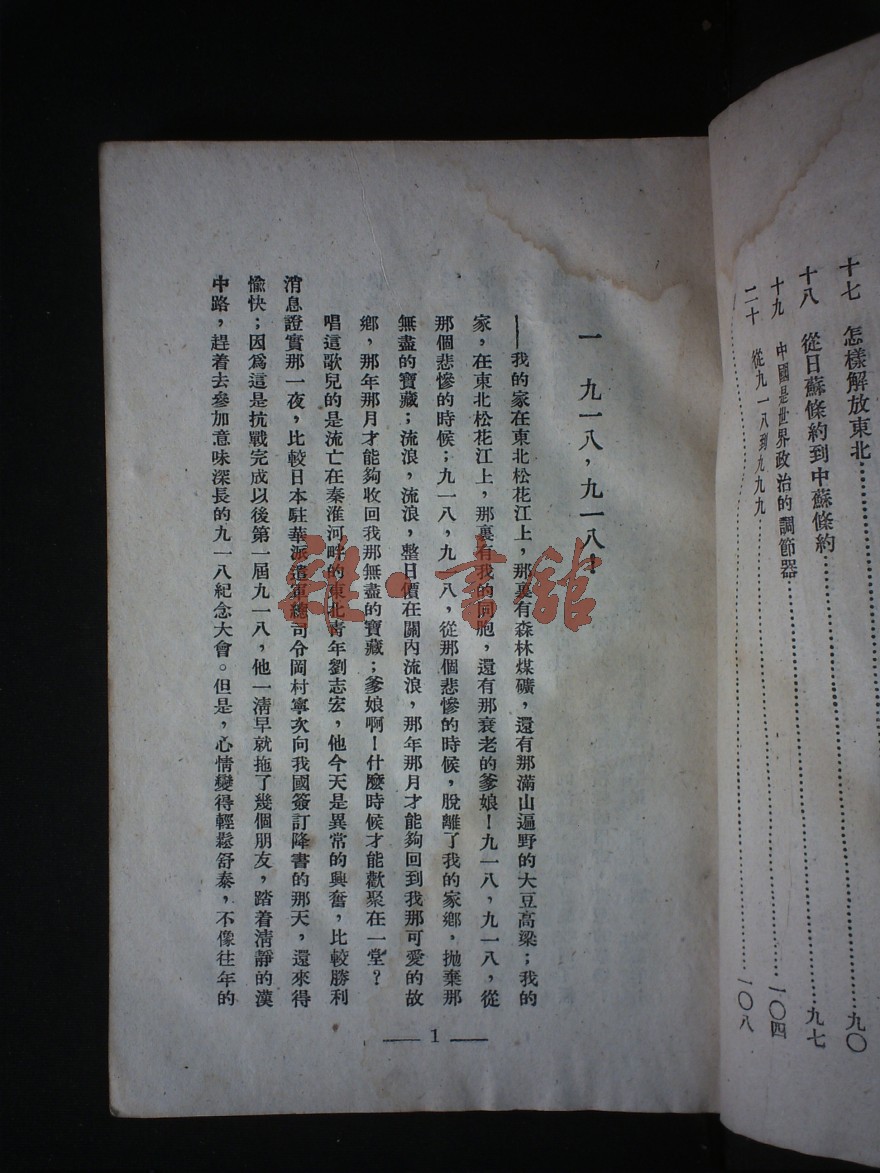 十七　怎樣解放東北……………………九〇
十八　從日蘇條約到中蘇條約……………………九七
十九　中國是世界政治的調節器……………………一〇四
二十　從九一八到九九九……………………一〇八
一　九一八，九一八！
——我的家在東北松花江上，那裏有森林煤礦，還有那滿山遍野的大豆高梁；我的
家，在東北松花江上，那裏有我的同胞，還有那衰老的爹娘！九一八，九一八，從
那個悲慘的時候；九一八，九一八，從那個悲慘的時候，脫離了我的家鄉，拋棄那
無盡的寶藏；流浪，流浪，整日價在關內流浪，那年那月才能夠回到我那可愛的故
鄉，那年那月才能夠收回我那無盡的寶藏；爹娘啊！什麼時候才能歡聚在一堂？
唱這歌兒的是流亡在秦淮河畔的東北青年劉志宏，他今天是異常的興奮，比較勝利
消息證實那一夜，比較日本駐華派遣軍總司令岡村寧次向我國簽訂降書的那天，還來得
愉快；因爲這是抗戰完成以後第一屆九一八，他一淸早就拖了幾個朋友，踏着淸靜的漢
中路，趕着去參加意味深長的九一八紀念大會。但是，心情變得輕鬆舒泰，不像往年的
— 1 —
雜·書館